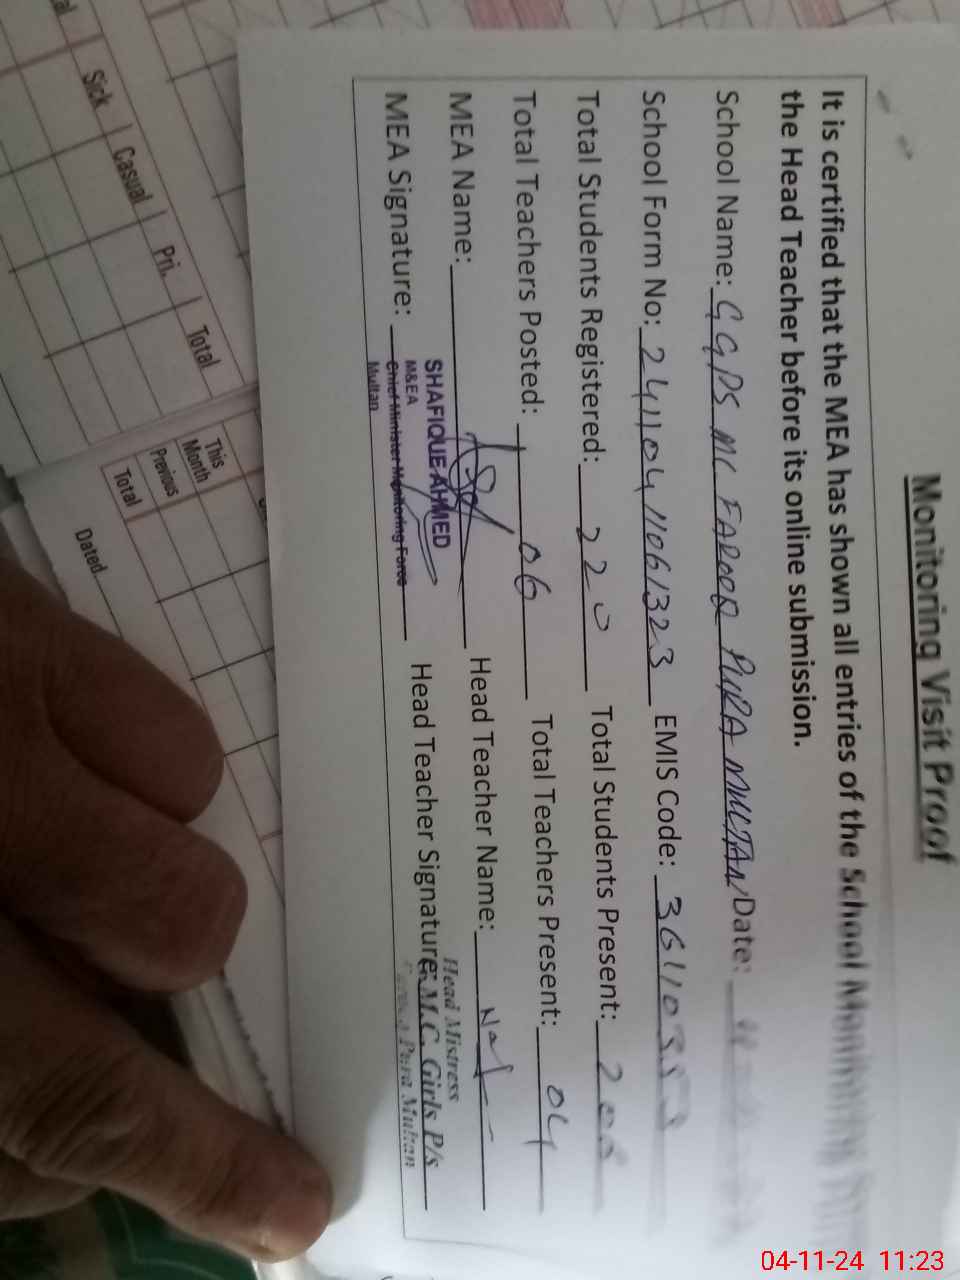 Monitoring Visit Proof
It is certified that the MEA has shown all entries of the School Monitoring
the Head Teacher before its online submission.
School Name: GGPS MC FAROOQ PURA MULTAN Date:
School Form No: 24110411061323 EMIS Code:
Total Students Registered: 220 Total Students Present:
Total Teachers Posted: 06 Total Teachers Present: 04
MEA Name: Head Teacher Name:
SHAFIQUE AHMED
M&EA
Chief Minister Monitoring Force
Multan
MEA Signature: Head Teacher Signature:
Head Mistress
G.M.C. Girls P/s
Pura Multan
Sick Casual Pri. Total
This Month
Previous
Total
Dated
04-11-24 11:23